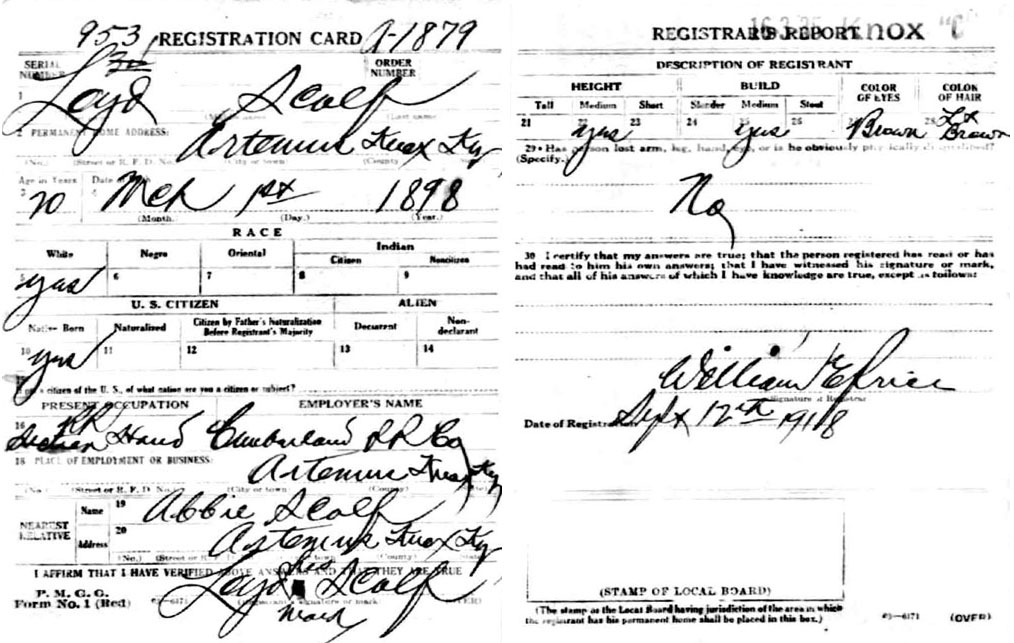 953
REGISTRATION CARD A-1879
SERIAL NUMBER
ORDER NUMBER
1
Loyd Scalf
2 PERMANENT HOME ADDRESS:
Artemus Knox Ky
(No.) (Street or R. F. D. No.) (City or town) (County)
Age in Years
Date of Birth
3 4
20 Mch 1st 1898
(Month.) (Day.) (Year.)
RACE
White Negro Oriental Indian
Citizen Noncitizen
5 6 7 8 9
yes
U. S. CITIZEN ALIEN
Native Born Naturalized Citizen by Father's Naturalization Before Registrant's Majority Declarant Non-declarant
10 11 12 13 14
yes
If not a citizen of the U. S., of what nation are you a citizen or subject?
PRESENT OCCUPATION EMPLOYER'S NAME
16
RR
Section Hand Cumberland RR Co
18 PLACE OF EMPLOYMENT OR BUSINESS:
Artemus Knox Ky
(No.) (Street or R. F. D. No.) (City or town) (County)
NEAREST RELATIVE
Name 19 Abbie Scalf
Address 20 Artemus Knox Ky
(No.) (Street or R. F. D. No.) (County)
I AFFIRM THAT I HAVE VERIFIED ABOVE ANSWERS AND THAT THEY ARE TRUE
his
Loyd Scalf
mark
P. M. G. O.
Form No. 1 (Red) (OVER)
REGISTRAR'S REPORT
DESCRIPTION OF REGISTRANT
HEIGHT BUILD COLOR OF EYES COLOR OF HAIR
Tall Medium Short Slender Medium Stout
21 22 23 24 25 26 28
yes yes Brown Lt Brown
29 Has person lost arm, leg, hand, eye, or is he obviously physically disqualified?
(Specify.)
No
30 I certify that my answers are true; that the person registered has read or has
had read to him his own answers; that I have witnessed his signature or mark,
and that all of his answers of which I have knowledge are true, except as follows:
William E Price
Signature of Registrar
Date of Registration Sept 12th 1918
(STAMP OF LOCAL BOARD)
(The stamp of the Local Board having jurisdiction of the area in which
the registrant has his permanent home shall be placed in this box.)
03—6171 (OVER)